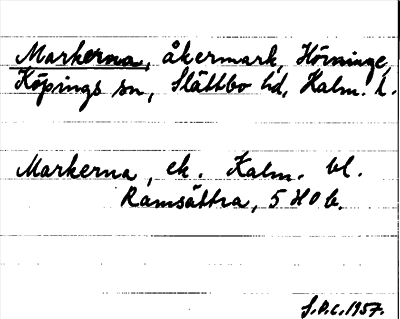 Markerna, åkermark, Hörninge,
Köpings sn, Slättbo hd, Kalm. l.
Markerna, ek. Kalm. bl.
Ramsättra, 5 H 0 b.
S.D.C. 1957.